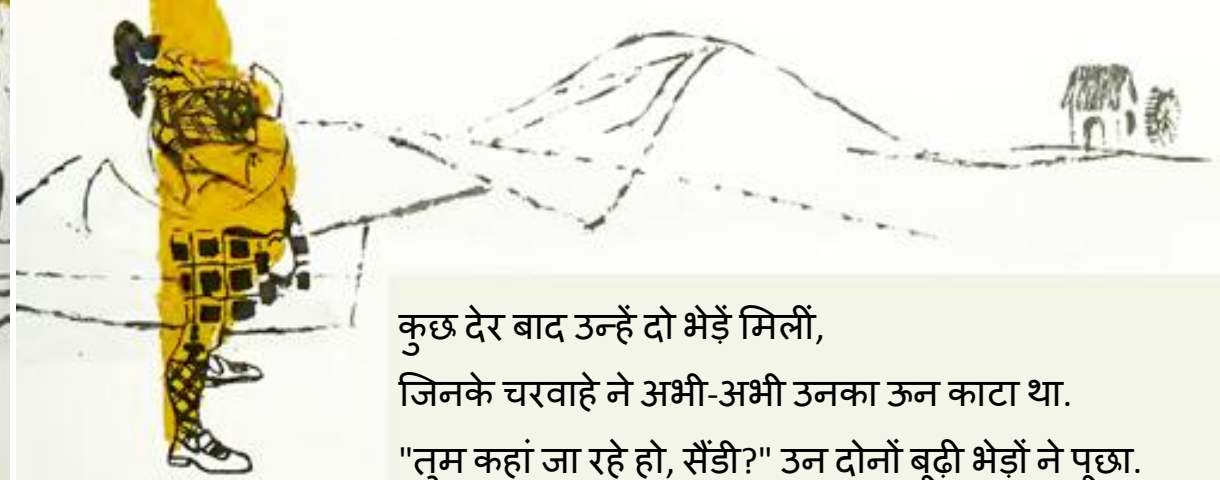 कुछ देर बाद उन्हें दो भेड़ें मिलीं,
जिनके चरवाहे ने अभी-अभी उनका ऊन काटा था.
"तुम कहां जा रहे हो, सैंडी?" उन दोनों बूढ़ी भेड़ों ने पूछा.